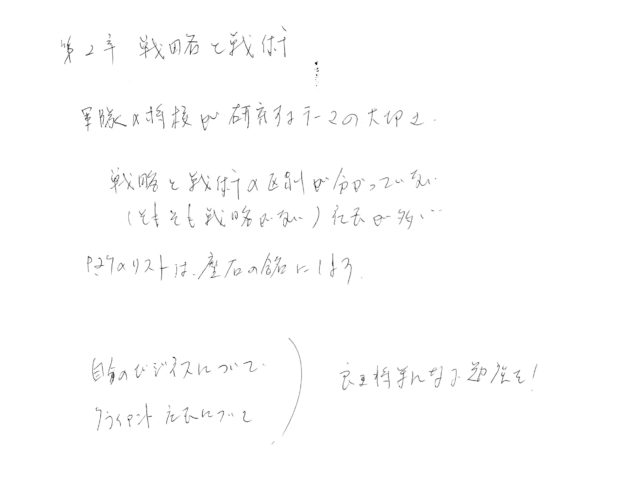 第2章 戦略と戦術
軍隊の将校が研究するテーマの大切さ.
戦略と戦術の区別が分かっていない
(そもそも戦略がない)社長が多い…
P27のリストは、座右の銘にしよう.
自分のビジネスについて.
クライアント社長について
良き将軍になる勉強を!